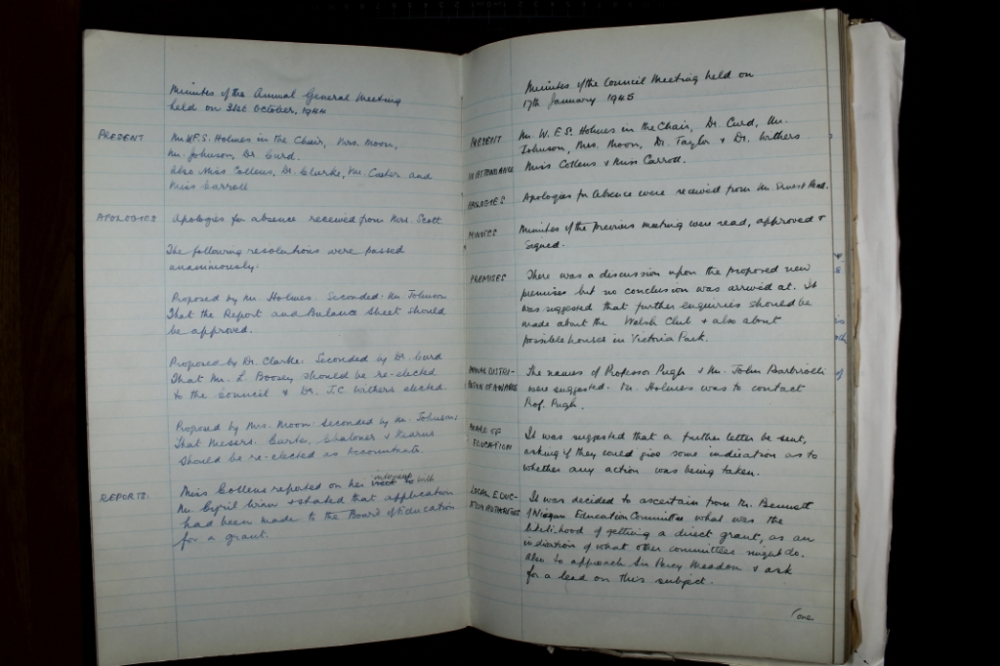 Minutes of the Annual General Meeting
held on 31st October, 1944
PRESENT Mr. W.E.S. Holmes in the Chair, Mrs. Moon,
Mr. Johnson, Dr. Curd.
Also Miss Collens, Dr. Clarke, Mr. and
Miss Carroll
APOLOGIES Apologies for absence received from Mrs. Scott
The following resolutions were passed
unanimously.
Proposed by Mr. Holmes. Seconded: Mr. Johnson
That the Report and Balance Sheet should
be approved.
Proposed by Dr. Clarke. Seconded by Dr. Curd
That Mr. L. Boosey should be re-elected
to the Council & Dr. J.C. Withers elected.
Proposed by Mrs. Moon: Seconded by Mr. Johnson:
That Messrs. Chaloner &
should be re-elected as Accountants.
REPORTS. Miss Collens reported on her interview with
Mr. Cyril Winn & stated that application
had been made to the Board of Education
for a grant.
Minutes of the Council Meeting held on
17th January 1945
PRESENT Mr. W.E.S. Holmes in the Chair, Dr. Curd, Mr.
Johnson, Mrs. Moon, Dr. Taylor & Dr. Withers
IN ATTENDANCE Miss Collens & Miss Carroll.
APOLOGIES Apologies for absence were received from Mr. Ernest Read.
MINUTES Minutes of the previous meeting were read, approved &
signed.
PREMISES There was a discussion upon the proposed new
premises but no conclusion was arrived at. It
was suggested that further enquiries should be
made about the Welsh Club & also about
possible houses in Victoria Park.
ANNUAL DISTRI- The names of Professor Pugh & Mr. John Barbirolli
BUTION OF AWARDS were suggested. Mr. Holmes was to contact
Prof. Pugh.
BOARD OF It was suggested that a further letter be sent,
EDUCATION asking if they could give some indication as to
whether any action was being taken.
LOCAL EDUC- It was decided to ascertain from Mr. Bennett
ATION AUTHORITIES of Wigan Education Committee what was the
likelihood of getting a direct grant, as an
indication of what other committees might do.
Also to approach Sir Percy Meadon & ask
for a lead on this subject.